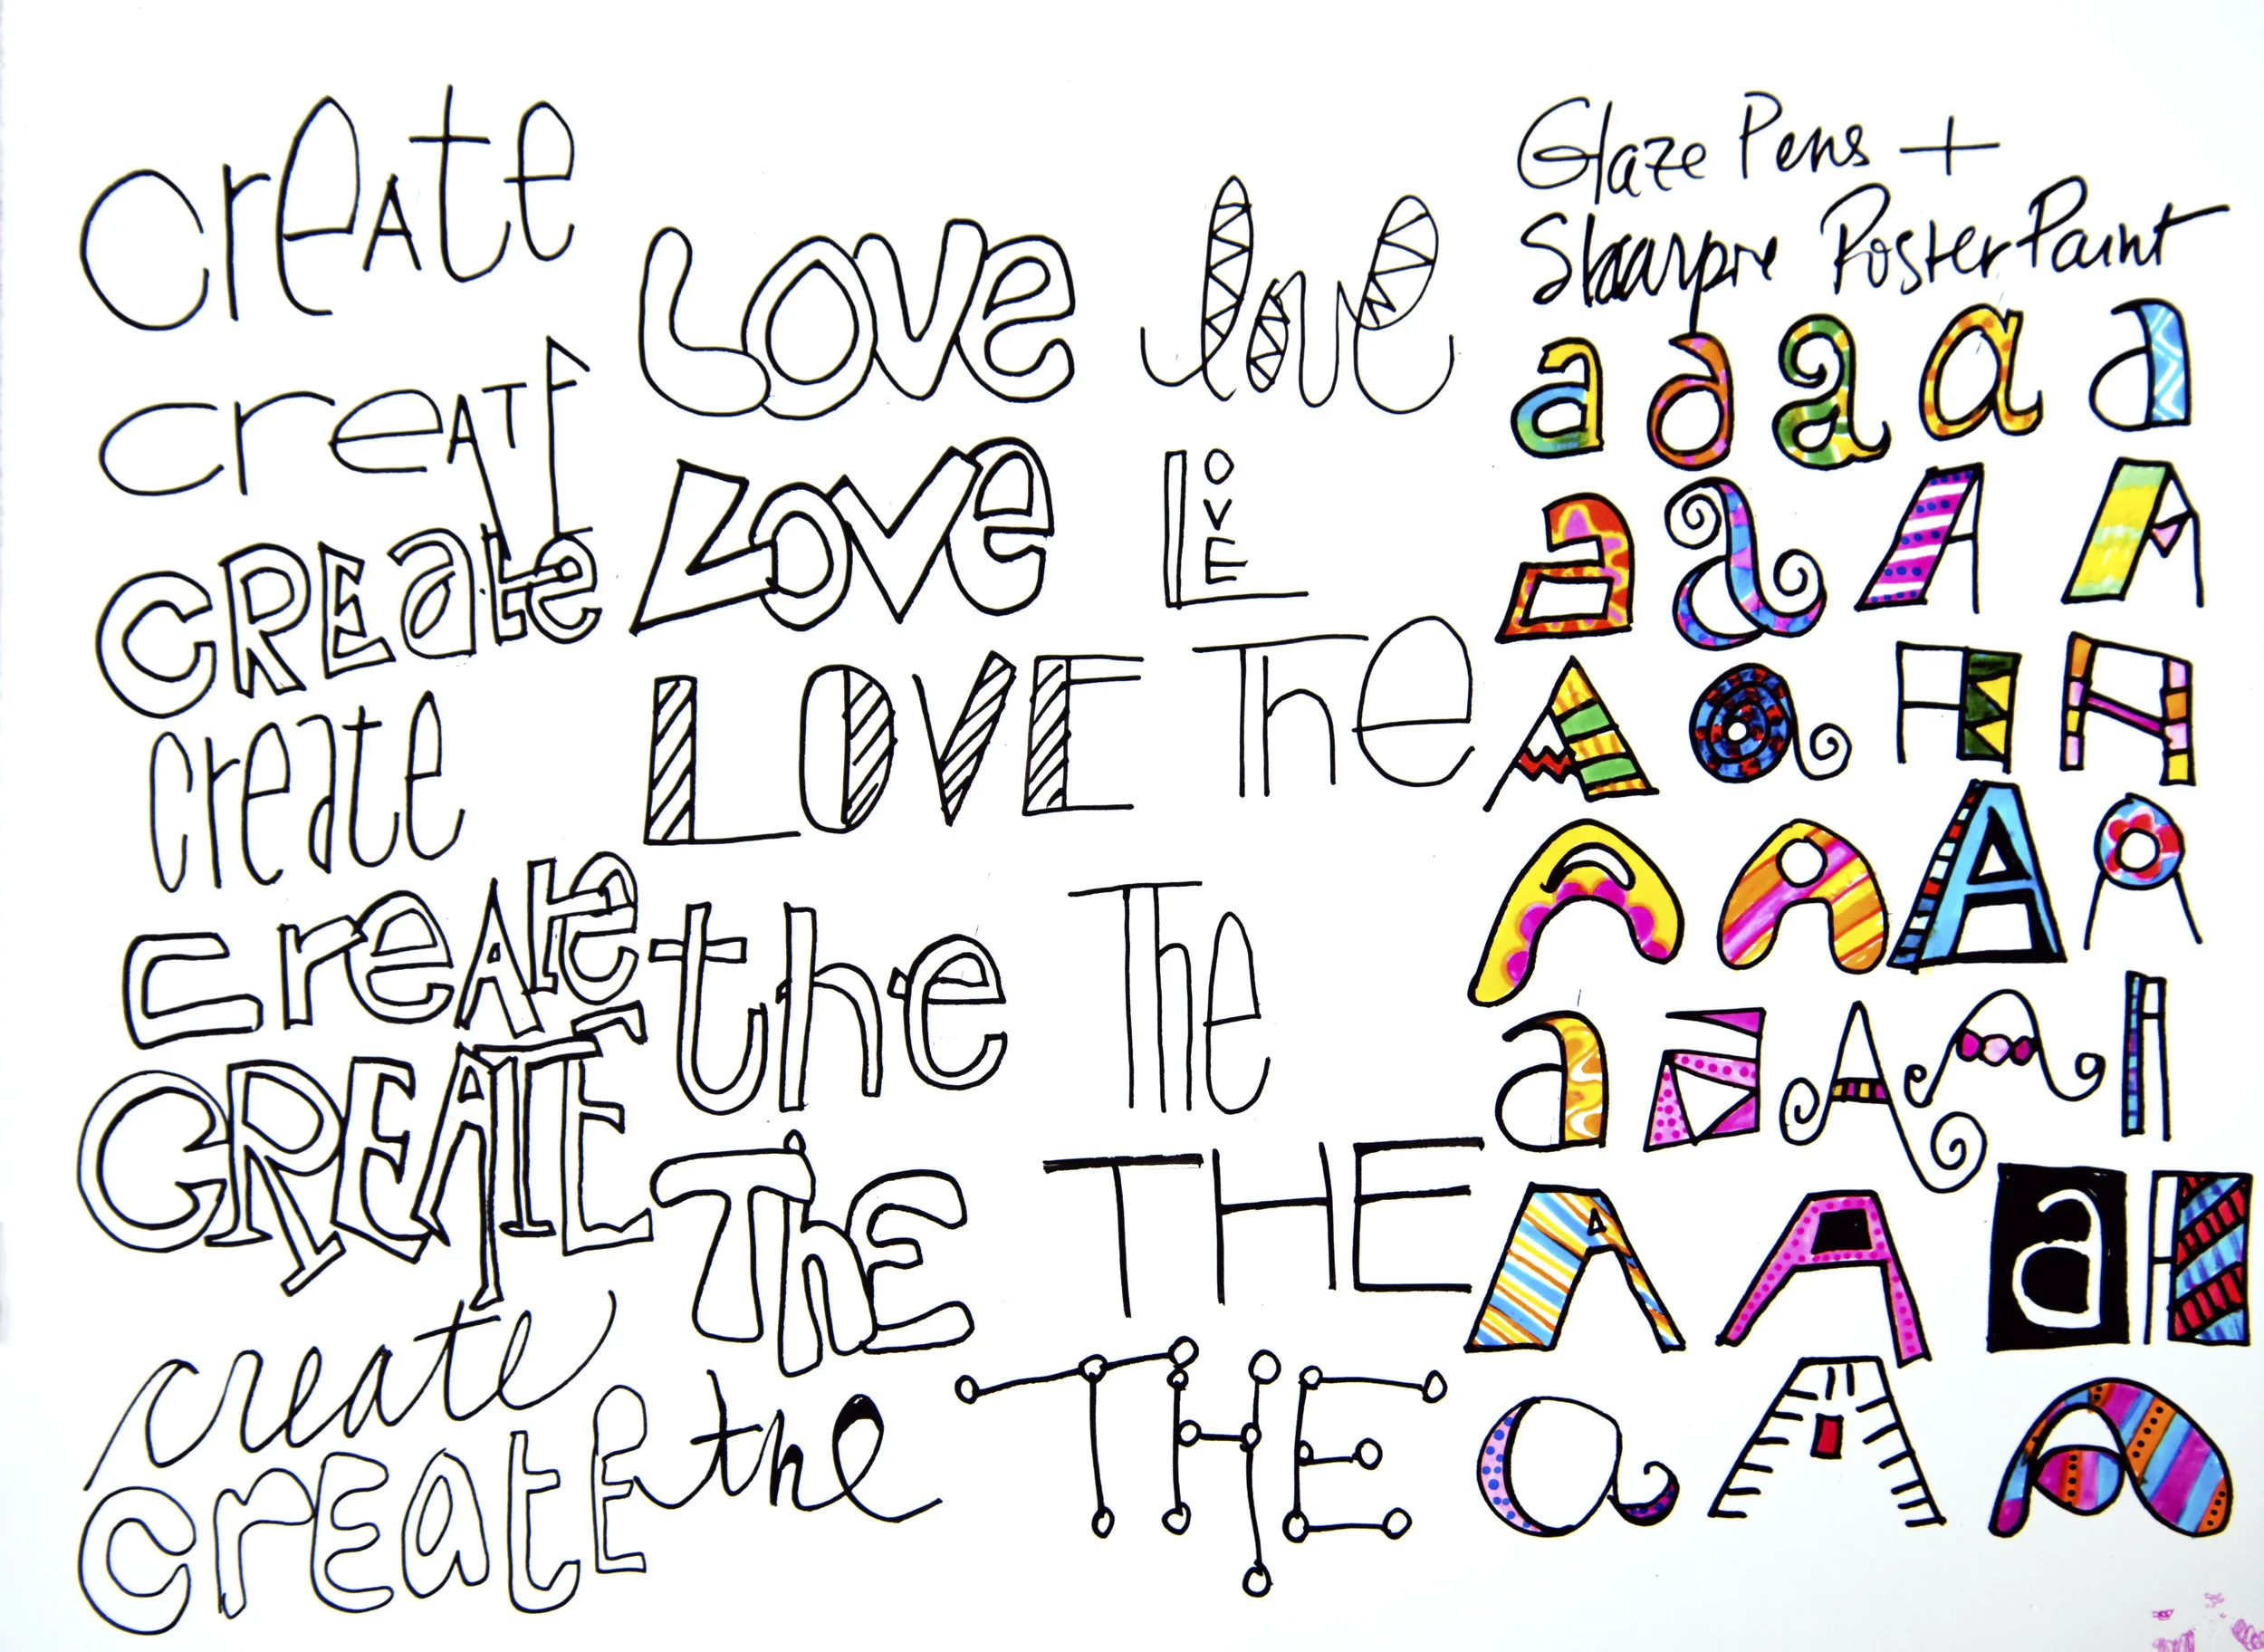 creAte
creATE
CREate
create
creAte
CREATE
create
CrEatE
Love
love
Love
LOVE
LOVE
The
the
The
ThE
THE
the
THE
Glaze Pens +
Sharpie Poster Paint
a a a a a
a a A A
A a A A
A A A A
a a A A A
A A a A
a A A